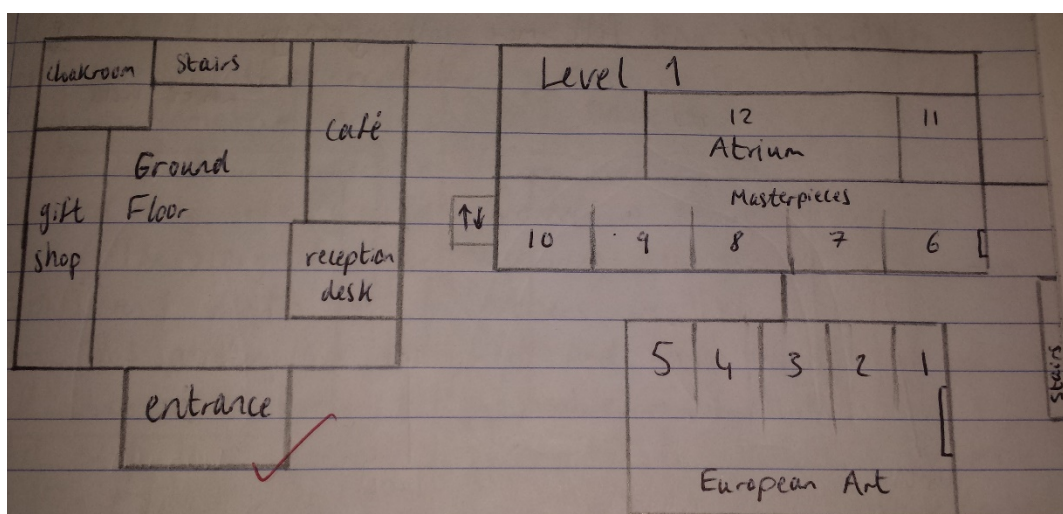 cloakroom
Stairs
café
Ground
Floor
gift
shop
reception
desk
entrance
Level 1
12
11
Atrium
Masterpieces
↑↓
10
9
8
7
6
5
4
3
2
1
Stairs
European Art